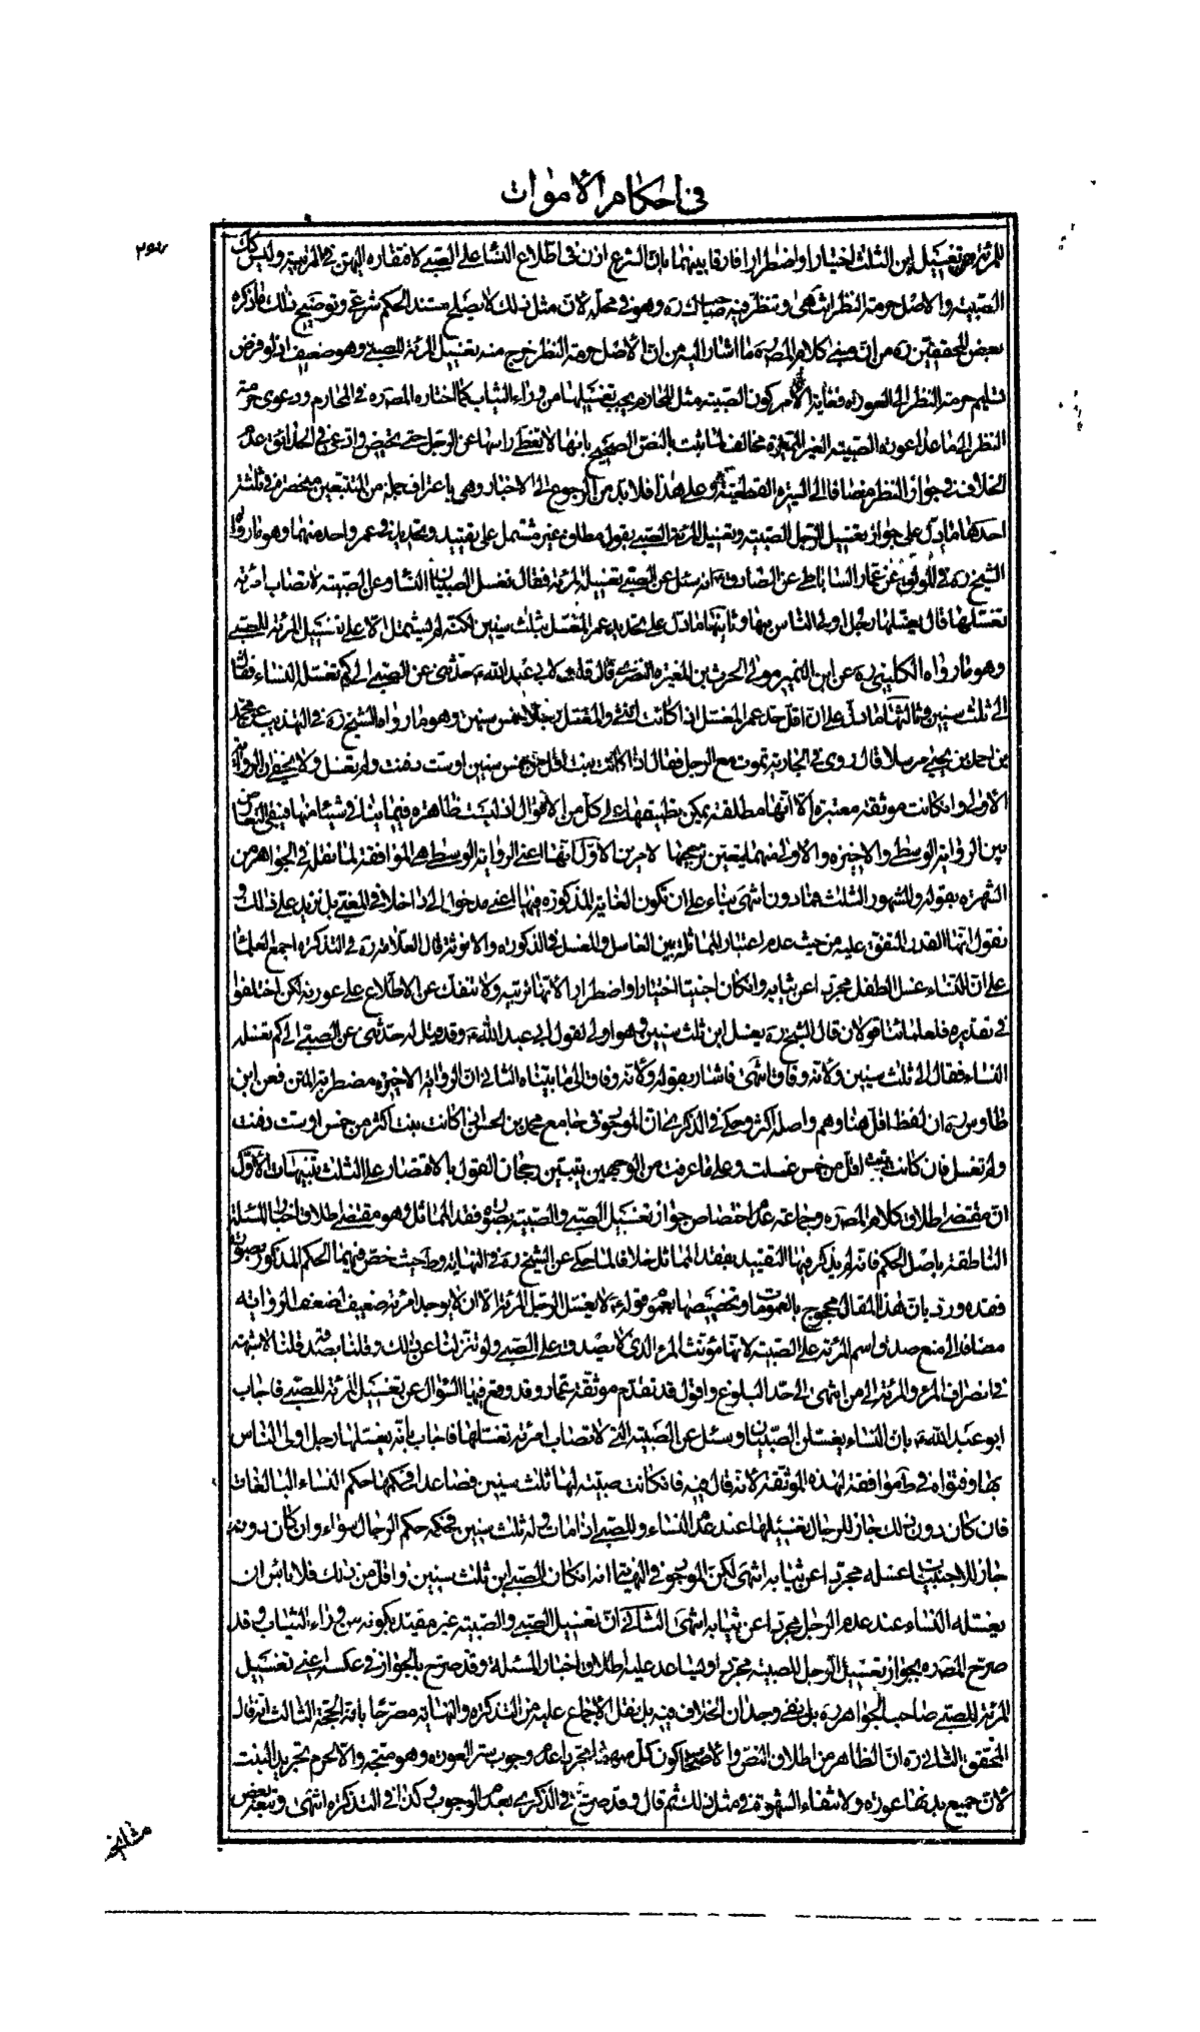 في احكام الاموات
للمرئة تغسيل ابن الثلث اختيارا واضطرارا فارقا بينهما بان الشرع اذن في اطلاع النساء على الصبي لافتقاره اليهن في التربية وليس كك
الصبية والاصل حرمة النظر انتهى وتنظر فيه صاحب ك ره وهو في محله لان مثل ذلك لا يصلح مستند الحكم شرعي وتوضيح ذلك ما ذكره
بعض المحققين ره من ان مبنى كلام المص ره ما اشار اليه من ان الاصل حرمة النظر خرج منه تغسيل المرئة للصبي وهو ضعيف اذ لو فرض
تسليم حرمة النظر الى العورة فغاية الامر كون الصبية مثل المحارم يجب تغسيلها من وراء الثياب كما اختاره المص ره في المحارم ودعوى حرمة
النظر الى ما عدا عورة الصبية الغير المميزة مخالف لما ثبت بالنص الصحيح بانها لا تغطي راسها عن الرجل حتى تحيض وادعى في الحدائق عدم
الخلاف في جواز النظر مضافا الى السيرة القطعية وعلى هذا فلا بد من الرجوع الى الاخبار وهي باعتراف جملة من المتتبعين منحصرة في ثلثة
احدها ما دل على جواز تغسيل الرجل الصبية وتغسيل المرئة الصبي بقول مطلق غير مشتمل على تقييد وتحديد في عمر واحد منهما وهو ما رواه
الشيخ ره في الموثق عن عمار الساباطي عن الصادق ع انه سئل عن الصبي تغسله امرئة فقال تغسل الصبيان النساء وعن الصبية لا تصاب امرئة
تغسلها قال يغسلها رجل اولى الناس بها وثانيها ما دل على تحديد عمر المغسل بثلث سنين لكنه لم يشتمل الا على تغسيل المرئة للصبي
وهو ما رواه الكليني ره عن ابن النمير مولى الحرث بن المغيرة النضري قال قلت لابي عبد الله ع حدثني عن الصبي الى كم تغسله النساء فقال
الى ثلث سنين وثالثها ما دل على ان اقل حد عمر المغسل اذا كانت انثى والمغسل رجلا خمس سنين وهو ما رواه الشيخ ره في التهذيب عن محمد
بن احمد بن يحيى مرسلا قال روى في الجارية تموت مع الرجل فقال اذا كانت بنت اقل من خمس سنين او ست دفنت ولم تغسل ولا يخفى ان الرواية
الاولى وان كانت موثقة معتبرة الا انها مطلقة يمكن تطبيقها على كل من الاقوال اذ ليست ظاهرة فيما ينافي شيئا منها فيبقى التعارض
بين الرواية الوسطى والاخيرة والاولى منهما يتعين ترجيحها لامرين الاول انها اعني الرواية الوسطى هي الموافقة لما نقل في الجواهر من
الشهرة بقوله والمشهور الثلث فما دون انتهى بناء على ان تكون الغاية المذكورة فيها اعني مدخول الى داخلا في المغيى بل نزيد على ذلك و
نقول انها القدر المتفق عليه من حيث عدم اعتبار المماثلة بين الغاسل والمغسل في الذكورة والانوثة قال العلامة ره في التذكرة اجمع العلماء
على ان للنساء غسل الطفل مجردا عن ثيابه وان كان اجنبيا اختيارا واضطرارا لانها تربيه ولا تنفك عن الاطلاع على عورته لكن اختلفوا
في تقديره فلعلمائنا قولان قال الشيخ ره يغسل ابن ثلث سنين وهو اولى لقول ابي عبد الله ع وقد قيل له حدثني عن الصبي الى كم تغسله
النساء فقال الى ثلث سنين ولانه وفاق انتهى فاشار بقوله ولانه وفاق الى ما بيناه الثاني ان الرواية الاخيرة مضطربة المتن فعن ابن
طاوس ره ان لفظ اقل هنا وهم واصله اكثر وحكى في الذكرى ان الموجود في جامع محمد بن الحسن اذا كانت بنت اكثر من خمس او ست دفنت
ولم تغسل فان كانت بنت اقل من خمس غسلت وعلى ما عرفت من الوجهين يتبين رجحان القول بالاقتصار على الثلث تنبيهات الاول
ان مقتضى اطلاق كلام المص ره وجماعة عدم اختصاص جواز تغسيل الصبي والصبية بصورة فقد المماثل وهو مقتضى اطلاق اخبار المسئلة
الناطقة باصل الحكم فانه لم يذكر فيها التقييد بفقد المماثل خلافا لما حكى عن الشيخ ره في النهاية وط حيث خص فيهما الحكم المذكور بصورة
فقده ورد بان هذا المقال محجوج بالعمومات وتخصيصها بعموم قوله ع لا يغسل الرجل المرئة الا ان لا يوجد امرئة ضعيف لضعف الرواية
مضافا الى منع صدق اسم المرئة على الصبية لانها مؤنث المرء الذي لا يصدق على الصبي ولو تنزلنا عن ذلك وقلنا بصدقه قلنا لا شبهة
في انصراف المرء والمرئة الى من انتهى الى حد البلوغ واقول قد تقدم موثقة عمار وقد وقع فيها السؤال عن تغسيل المرئة للصبي فاجاب
ابو عبد الله ع بان النساء يغسلن الصبيان وسئل عن الصبية التي لا تصاب امرئة تغسلها فاجاب بانه يغسلها رجل اولى الناس
بها وفتواه في ط موافقة لهذه الموثقة لانه قال فيه فان كانت صبية لها ثلث سنين فصاعدا فحكمها حكم النساء البالغات
فان كان دون ذلك جاز للرجال تغسيلها عند عدم النساء والصبي اذا مات وله ثلث سنين فحكمه حكم الرجال سواء وان كان دونه
جاز للاجنبيات غسله مجردا عن ثيابه انتهى لكن الموجود في النهاية انه ان كان الصبي ابن ثلث سنين واقل من ذلك فلا باس ان
يغسله النساء عند عدم الرجال مجردا عن ثيابه انتهى الثاني ان تغسيل الصبي والصبية غير مقيد بكونه من وراء الثياب وقد
صرح المص ره بجواز تغسيل الرجل للصبية مجردة ويساعد عليه اطلاق اخبار المسئلة وقد صرح بالجواز في عكسه اعني تغسيل
المرئة للصبي صاحب الجواهر ره بل نفى وجدان الخلاف فيه بل نقل الاجماع عليه من التذكرة والنهاية مصرحا بانه الحجة الثالث انه قال
المحقق الثاني ره ان الظاهر من اطلاق النص والاصحاب كون كل منهما مجردا عدم وجوب ستر العورة وهو متجه والا لحرم تجريد البنت
لان جميع بدنها عورة ولانتفاء الشهوة في مثل ذلك ثم قال وقد صرح في الذكرى بعدم الوجوب وكذا في التذكرة انتهى وتبعه بعض
مشايخنا